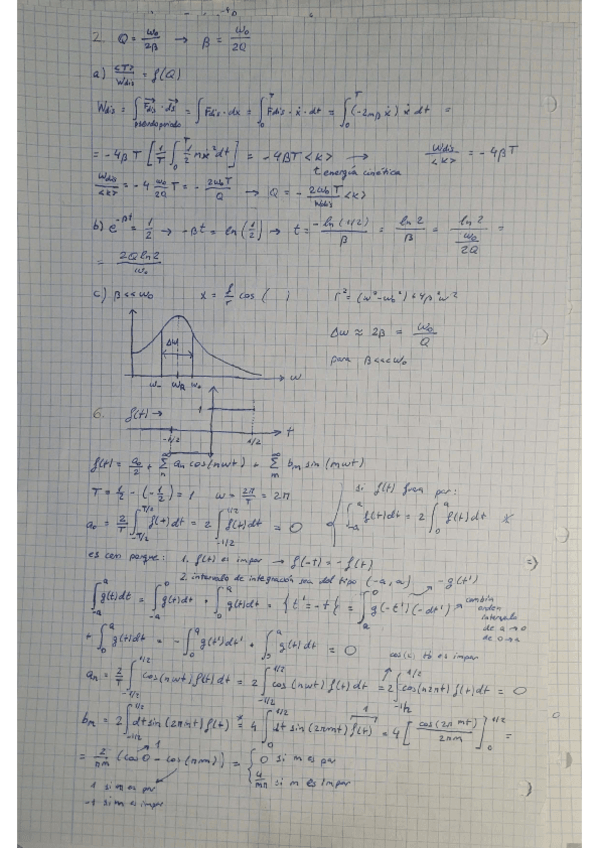 2. Q = ω₀/2β → β = ω₀/2Q
a) <T>/Wdis = f(Q)
Wdis = ∫ Fdis · ds = ∫ Fdis · dx = ∫₀ᵀ Fdis · ẋ · dt = ∫₀ᵀ (-2mβẋ) ẋ dt =
= -4βT [1/T ∫₀ᵀ 1/2 mẋ² dt] = -4βT <k> → Wdis/<k> = -4βT
energía cinética
Wdis/<k> = -4 ω₀/2Q T = - 2ω₀T/Q → Q = - 2ω₀T/Wdis <k>
b) e^(-βt) = 1/2 → -βt = ln(1/2) → t = -ln(1/2)/β = ln 2/β = ln 2/(ω₀/2Q) =
= 2Q ln 2/ω₀
c) β << ω₀ x = f/r cos ( ) r² = (ω² - ω₀²) + 4β²ω²
Δω
Δω ≈ 2β = ω₀/Q
para β <<< ω₀
ω
6. f(t) →
1
-1/2 1/2 t
f(t) = a₀/2 + Σ an cos(nωt) + Σ bm sin(mωt)
T = 1/2 - (-1/2) = 1 ω = 2π/T = 2π
si f(t) fuera par:
a₀ = 2/T ∫ f(t) dt = 2 ∫ f(t) dt = 0
∫ f(t) dt = 2 ∫₀ᵃ f(t) dt
es cero porque: 1. f(t) es impar → f(-t) = -f(t)
2. intervalo de integración sea del tipo (-a, a)
-g(t')
∫ g(t) dt = ∫ g(t) dt + ∫₀ᵃ g(t) dt = { t' = -t } = ∫ g(-t') (-dt')
orden
intervalo
de a → 0
de 0 → a
+ ∫₀ᵃ g(t) dt = - ∫₀ᵃ g(t') dt' + ∫₀ᵃ g(t) dt = 0
es impar
an = 2/T ∫ cos(nωt) f(t) dt = 2 ∫ cos(nωt) f(t) dt = 2 ∫ cos(n2πt) f(t) dt = 0
bm = 2 ∫ dt sin(2πmt) f(t) = 4 ∫ dt sin(2πmt) f(t) = 4 [cos(2πmt)/2πm]₀^(1/2) =
= 2/πm (cos 0 - cos(πm)) = { 0 si m es par
4/mπ si m es impar
1 si m es par
-1 si m es impar